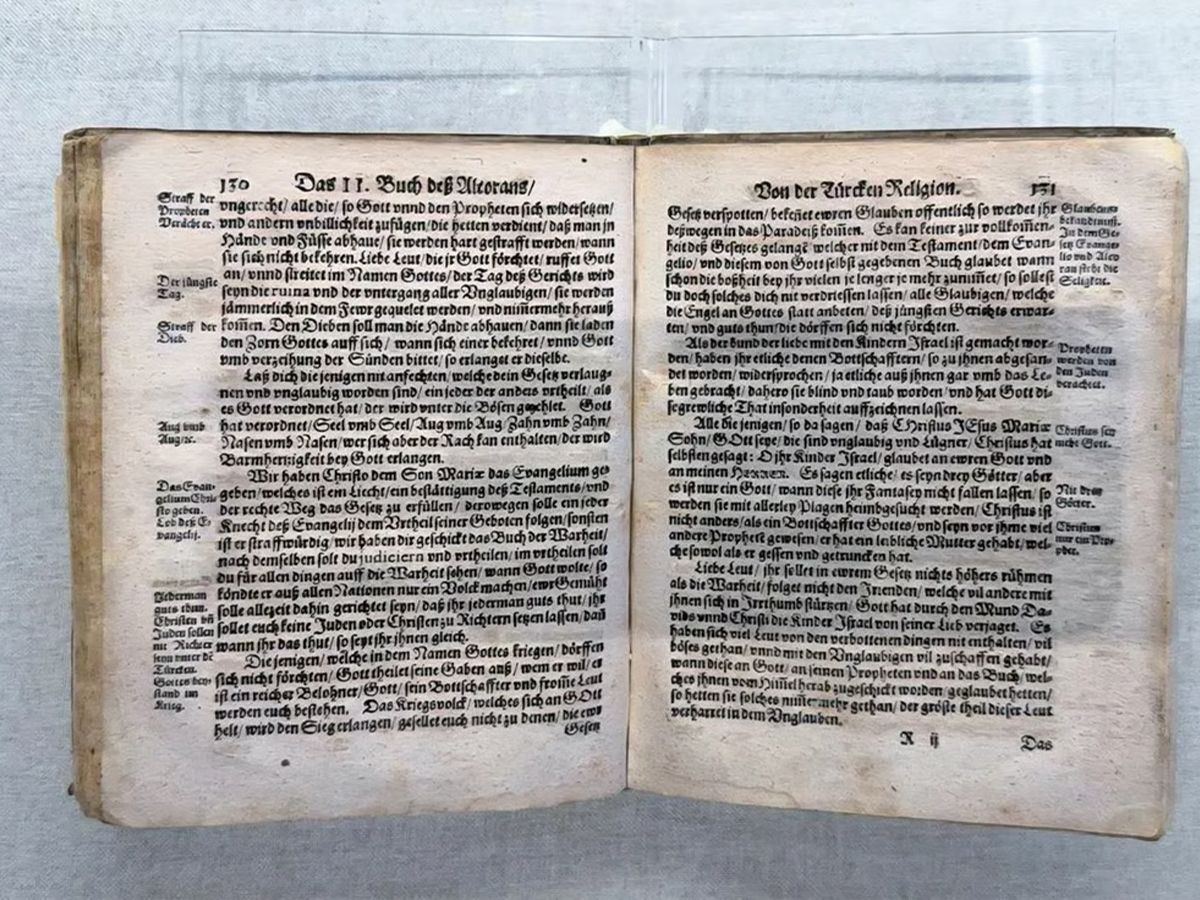 130 Das II. Buch deß Alcorans/
Straff der
Propheten
Verächter,
vngerecht/ alle die/ so Gott vnnd den Propheten sich widersetzen/
vnd andern vnbillichkeit zufügen/ die hetten verdient/ daß man jn
Hände vnd Füsse abhaue/ sie werden hart gestrafft werden/ wann
sie sich nicht bekehren. Liebe Leut/ die jr Gott förchtet/ ruffen Gott
an/ vnnd streitet im Namen Gottes/ der Tag deß Gerichts wird
Der jüngste
Tag.
seyn die ruina vnd der vntergang aller Vnglaubigen/ sie werden
jämmerlich in dem Fewr gequelet werden/ vnd nim̃ermehr herauß
Straff der
Dieb.
kom̃en. Den Dieben soll man die Hände abhauen/ dann sie laden
den Zorn Gottes auff sich/ wann sich einer bekehret/ vnnd Gott
vmb verzeihung der Sünden bittet/ so erlanget er dieselbe.
Laß dich die jenigen nit anfechten/ welche dein Gesetz verlaug-
nen vnd vnglaubig worden sind/ ein jeder der anders vrtheilt/ als
es Gott verordnet hat/ der wird vnter die Bösen gezehlet. Gott
Aug vmb
Aug/ꝛc.
hat verordnet/ Seel vmb Seel/ Aug vmb Aug/ Zahn vmb Zahn/
Nasen vmb Nasen/ wer sich aber der Rach kan enthalten/ der wird
Barmhertzigkeit bey Gott erlangen.
Wir haben Christo dem Son Mariæ das Evangelium ge-
Das Evan-
gelium Chri-
sto geben.
Lob deß E-
vangelij.
geben/ welches ist ein Liecht/ ein bestättigung deß Testaments/ vnd
der rechte Weg das Gesetz zu erfüllen/ derowegen solle ein jeder
Knecht deß Evangelij dem Vrtheil seiner Geboten folgen/ sonsten
ist er straffwürdig/ wir haben dir geschickt das Buch der Warheit/
nach demselben solt du judiciern vnd vrtheilen/ im vrtheilen solt
du für allen dingen auff die Warheit sehen/ wann Gott wolte/ so
Jederman
guts thun.
Christen vñ
Juden sollen
nit Richter
seyn vnter dē
Türcken.
Gottes bey-
stand im
Krieg.
köndte er auß allen Nationen nur ein Volck machen/ ewr Gemüht
solle allezeit dahin gerichtet seyn/ daß jhr jederman guts thut/ jhr
sollet euch keine Juden oder Christen zu Richtern setzen lassen/ dañ
wann jhr das thut/ so seyt jhr jhnen gleich.
Die jenigen/ welche in dem Namen Gottes kriegen/ dörffen
sich nicht förchten/ Gott theilet seine Gaben auß/ wem er wil/ er
ist ein reicher Belohner/ Gott/ sein Bottschaffter vnd from̃e Leut
werden euch bestehen. Das Kriegsvolck/ welches sich an GOtt
helt/ wird den Sieg erlangen/ gesellet euch nicht zu denen/ die ewr
Gesetz
Von der Türcken Religion. 131
Gesetz verspotten/ bekeñet ewren Glauben offentlich so werdet jhr
Glaubens-
bekandtnuß.
In dem Ge-
setz Evange-
lio vnd Alco
ran steht die
Seligkeit.
deßwegen in das Paradeiß kom̃en. Es kan keiner zur vollkom̃en-
heit deß Gesetzes gelangē welcher nit dem Testament/ dem Evan-
gelio/ vnd diesem von Gott selbst gegebenen Buch glaubet wann
schon die boßheit bey jhr vielen je lenger je mehr zunim̃et/ so sollest
du doch solches dich nit verdriessen lassen/ alle Glaubigen/ welche
die Engel an Gottes statt anbeten/ deß jüngsten Gerichts erwar-
ten/ vnd guts thun/ die dörffen sich nicht förchten.
Als der bund der liebe mit den Kindern Israel ist gemacht wor-
Propheten
werden von
den Juden
verachtet.
den/ haben jhr etliche denen Bottschafftern/ so zu jhnen abgesan-
det worden/ widersprochen/ ja etliche auß jhnen gar vmb das Le-
ben gebracht/ dahero sie blind vnd taub worden/ vnd hat Gott di-
se grewliche That insonderheit auffzeichnen lassen.
Alle die jenigen/ so da sagen/ daß CHristus JEsus Mariæ
Christus sey
nicht Gott.
Sohn/ GOtt seye/ die sind vnglaubig vnd Lügner/ Christus hat
selbsten gesagt: O jhr Kinder Israel/ glaubet an ewren Gott vnd
an meinen HERREN. Es sagen etliche/ es seyn drey Götter/ aber
Nit drey
Götter.
es ist nur ein Gott/ wann diese jhr Fantasey nicht fallen lassen/ so
werden sie mit allerley Plagen heimbgesucht werden/ Christus ist
Christus
nur ein Pro-
phet.
nicht anders/ als ein Bottschaffter Gottes/ vnd seyn vor jhme viel
andere Prophetē gewesen/ er hat ein leibliche Mutter gehabt/ wel-
che sowol als er gessen vnd getruncken hat.
Liebe Leut/ jhr sollet in ewrem Gesetz nichts höhers rühmen
als die Warheit/ folget nicht den Jrienden/ welche vil andere mit
jhnen sich in Irrthumb stürtzen/ Gott hat durch den Mund Da-
vids vnnd Christi die Kinder Israel von seiner Lieb verjaget. Es
haben sich viel Leut von den verbottenen dingen nit enthalten/ vil
böses gethan/ vnnd mit den Vnglaubigen vil zuschaffen gehabt/
wann diese an Gott/ an seinen Propheten vnd an das Buch/ wel-
ches jhnen vom Him̃el herab zugeschickt worden/ geglaubet hetten/
so hetten sie solches nim̃ermehr gethan/ der gröste theil dieser Leut
verharret in dem Vnglauben.
R ij Das